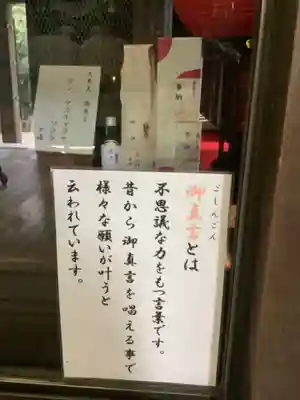 ごしんごん
御真言とは
不思議な力をもつ言葉です。
昔から御真言を唱える事で
様々な願いが叶うと
云われています。
奉納